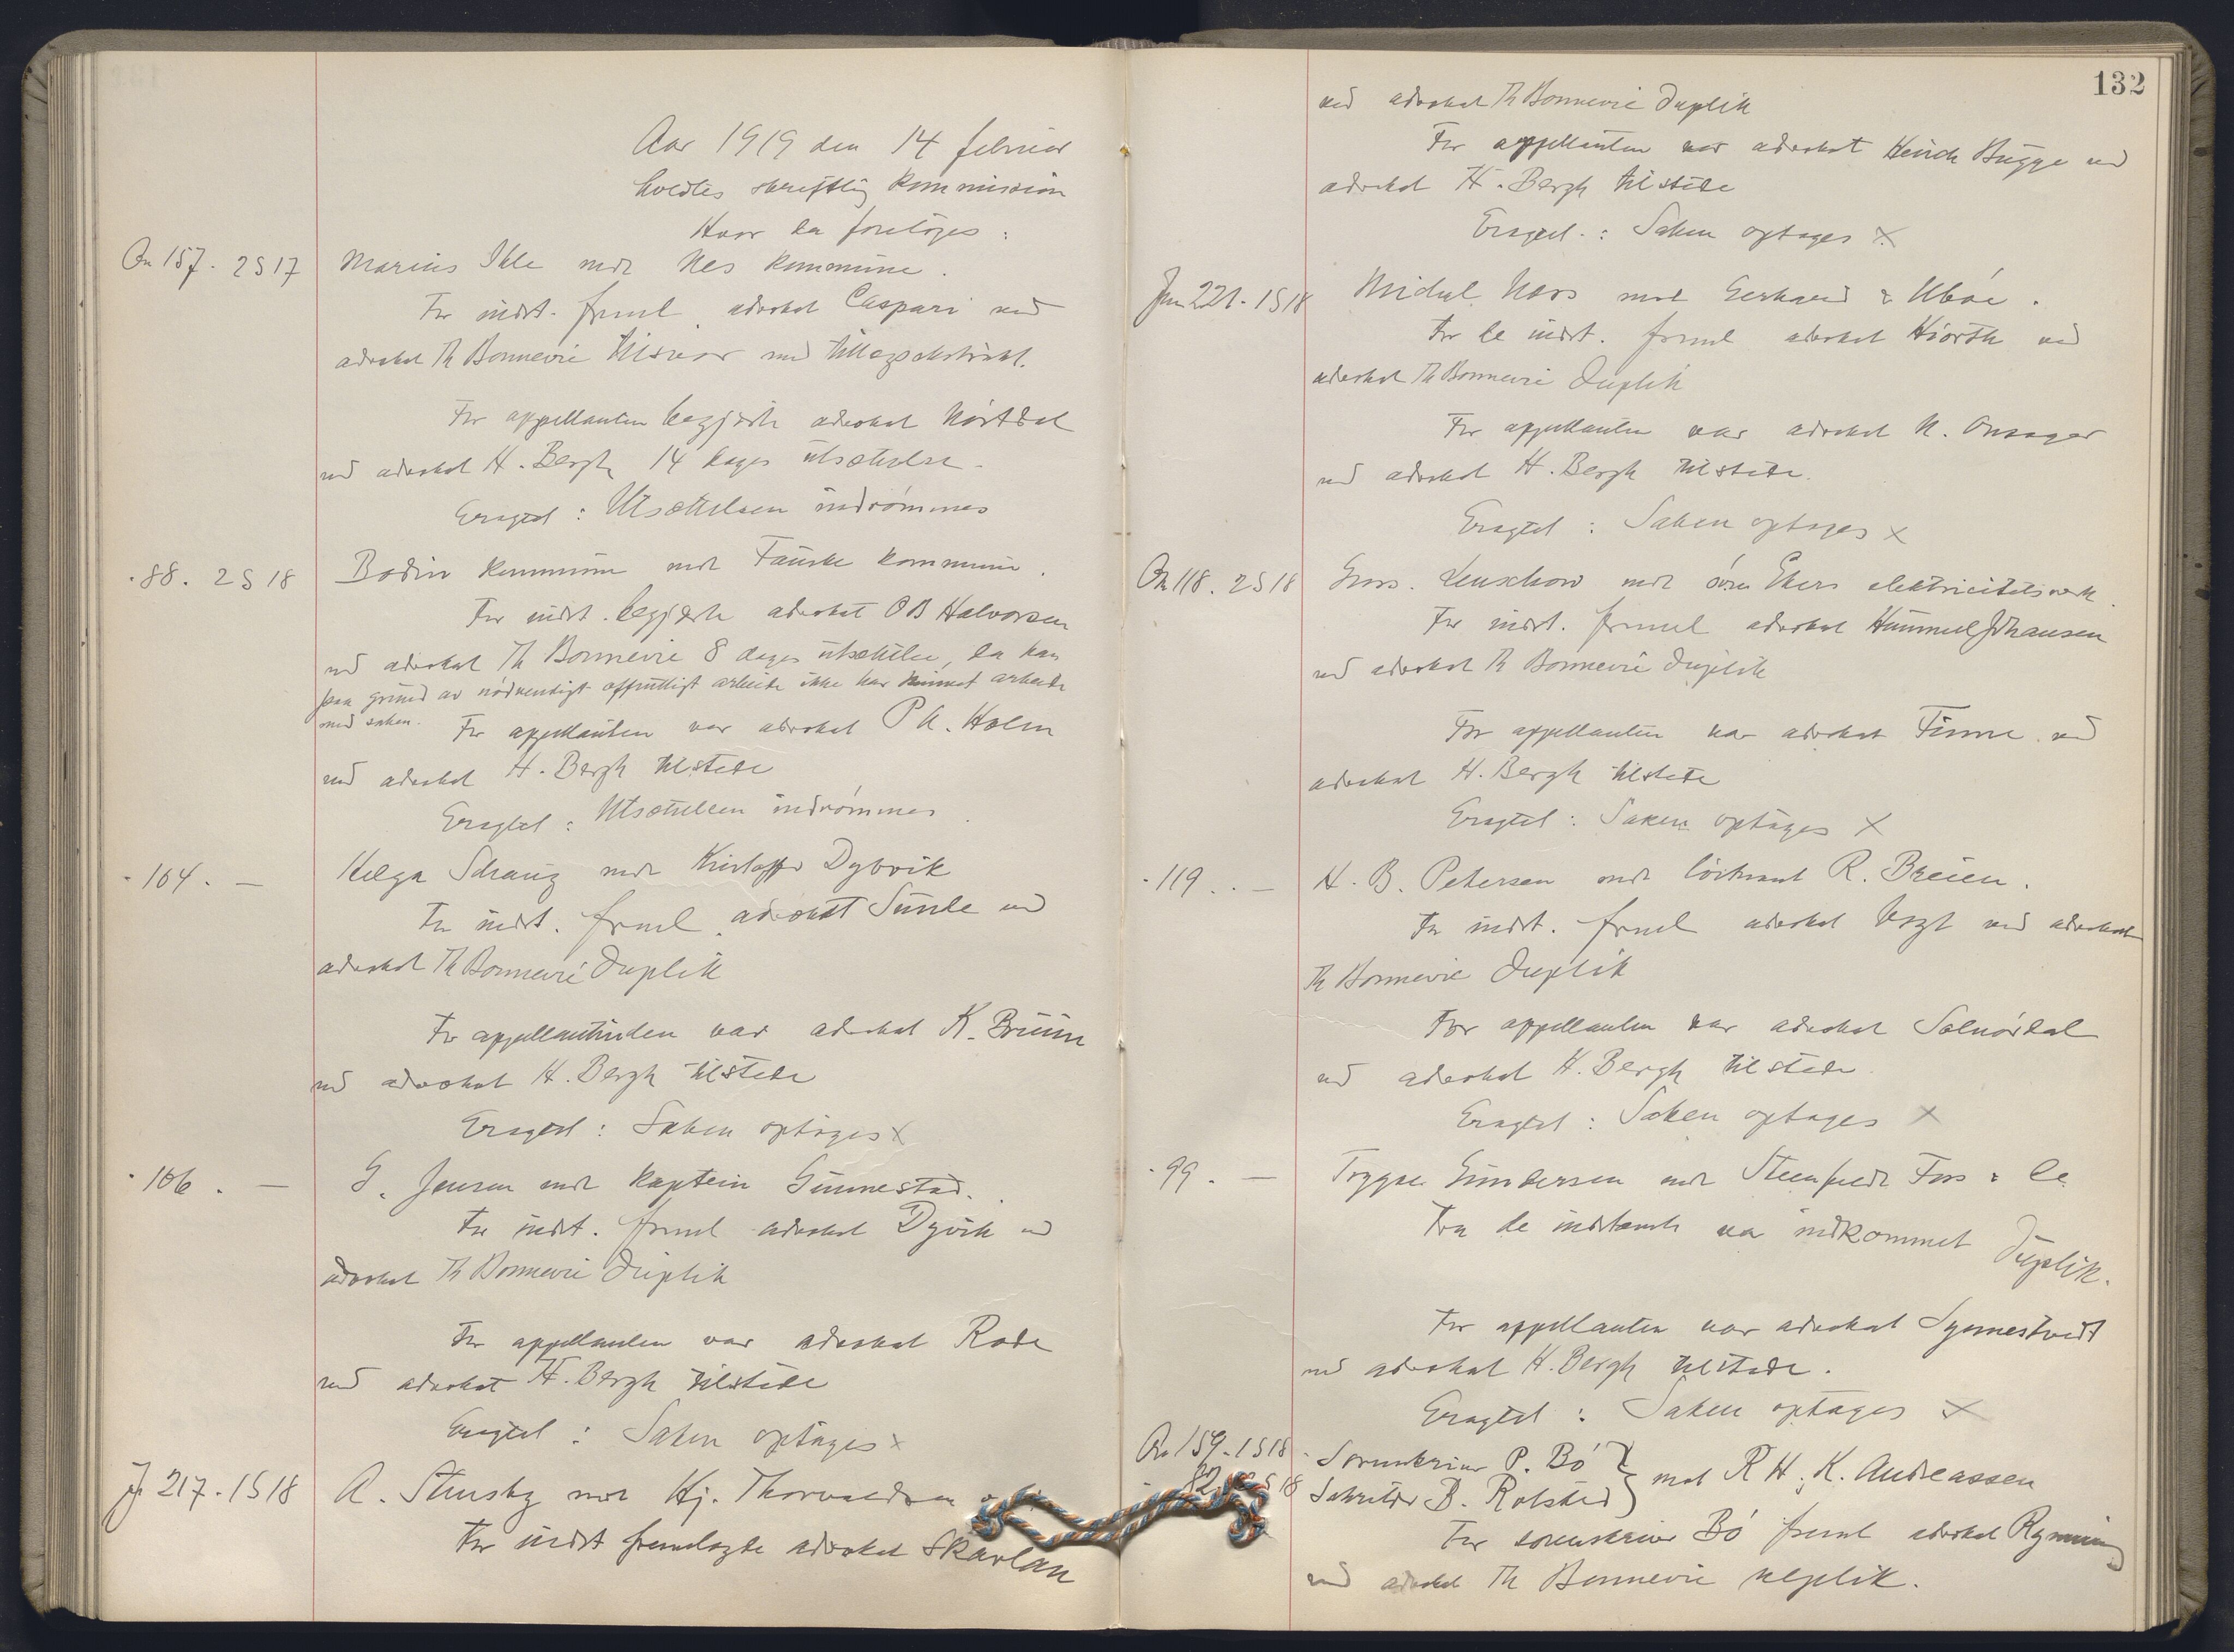 Aar 1919 den 14 februar
holdtes skriftlig kommission
Hvor da foretoges:
On 157. 2 S 17 Marius Ihle mot Nes kommune.
For indst. freml. advokat Caspari ved
advokat Th Bonnevie tilsvar med tillægsekstrakt.
For appellanten begjærte advokat Nørtdal
ved advokat H. Bergh 14 dages utsættelse.
Eragtet: Utsættelsen indrømmes
" 88. 2 S 18 Bodin kommune mot Fauske kommune.
For indst. begjærte advokat O B Halvorsen
ved advokat Th Bonnevie 8 dages utsættelse, da han
paa grund av nødvendigt offentligt arbeide ikke har kunnet arbeide
med saken.
For appellanten var advokat P A. Holm
ved advokat H. Bergh tilstede
Eragtet: Utsættelsen indrømmes.
" 104. — Helga Schanz mot Kristoffer Dybvik
For indst. freml. advokat Sunde ved
advokat Th Bonnevie duplik
For appellantinden var advokat K. Bruun
ved advokat H. Bergh tilstede
Eragtet: Saken optages x
" 106. — G. Jensen mot kaptein Gunnestad.
For indst. freml advokat Dyvik ved
advokat Th Bonnevie duplik
For appellanten var advokat Rode
ved advokat H. Bergh tilstede
Eragtet: Saken optages x
Jr 217. 1 S 18 A. Stensby mot Hj. Thorvaldsen
For indst fremlagde advokat Skavlan
132
ved advokat Th Bonnevie duplik
For appellanten var advokat Henrik Bugge ved
advokat H. Bergh tilstede
Eragtet: Saken optages x
Jrn 221. 1 S 18 Mickal Naas mot Gerhard & Ubøe.
For de indst. freml advokat Hiorth ved
advokat Th Bonnevie duplik
For appellanten var advokat N. Onsager
ved advokat H. Bergh tilstede.
Eragtet: Saken optages x
On 118. 2 S 18 Gros. Leuschow mot øvre Ekers elektricitetsverk.
For indst. freml advokat Hammel Johansen
ved advokat Th Bonnevie duplik
For appellanten var advokat Finne ved
advokat H. Bergh tilstede
Eragtet: Saken optages x
" 119. — H. B. Petersen mot løitnant R. Breien.
For indst. freml advokat Vogt ved advokat
Th Bonnevie duplik
For appellanten var advokat Solnørdal
ved advokat H. Bergh tilstede
Eragtet: Saken optages x
" 99. — Trygve Gundersen mot Steenfeldt Foss & Co
Fra de indstævnte var indkommet duplik.
For appellanten var advokat Syvnestvedt
ved advokat H. Bergh tilstede.
Eragtet: Saken optages x
On 159. 1 S 18 Sorenskriver P. Bø } mot R H. K. Andreassen
82 S 18 B. Rolsted
For sorenskriver Bø freml advokat Rynning
ved advokat Th Bonnevie replik.